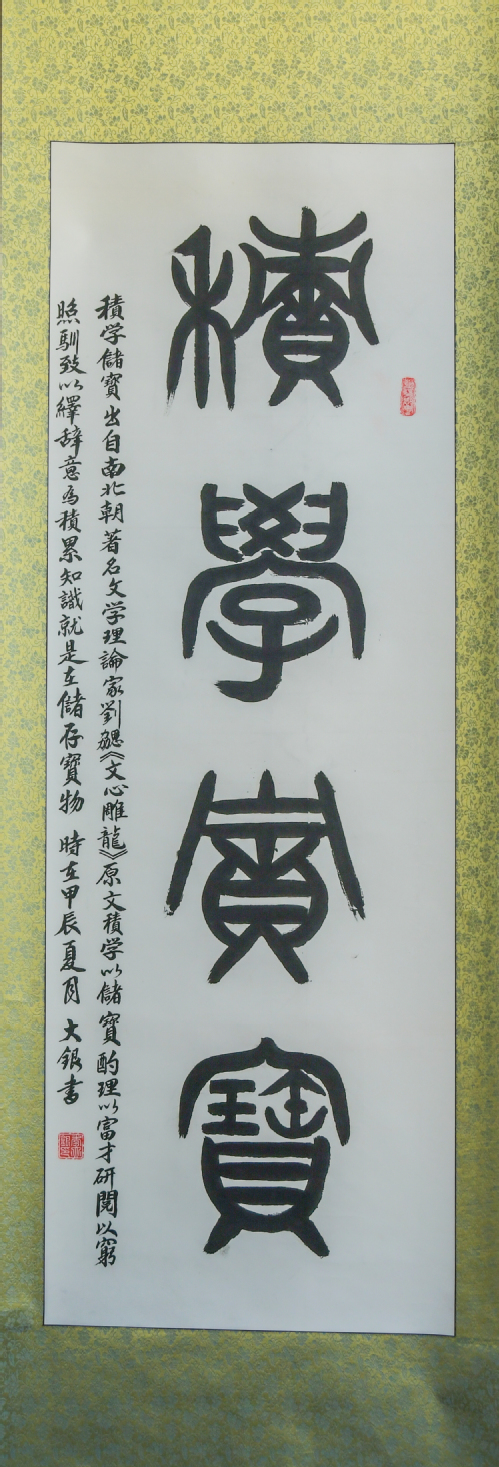 積學寶
積学儲寶出自南北朝著名文学理論家劉勰《文心雕龍》原文積学以儲寶酌理以富才研閱以窮
照馴致以繹辞意為積累知識就是在儲存寶物 時在甲辰夏月 大銀書